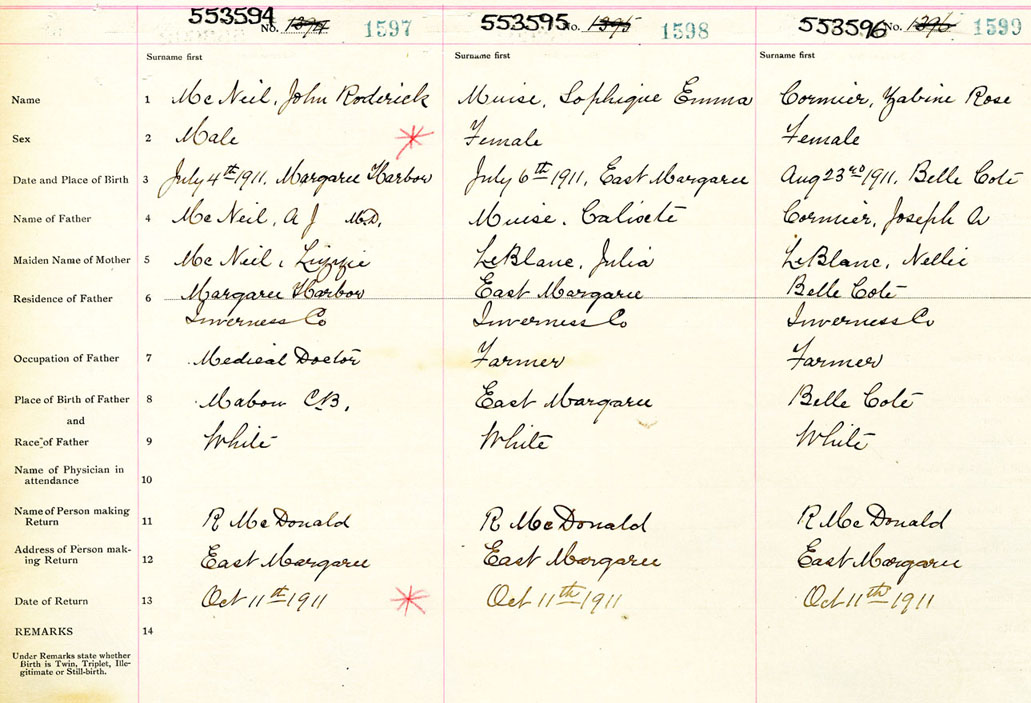 553594 No. 1394 1597 553595 No. 1395 1598 553596 No. 1396 1599
Surname first Surname first Surname first
Name 1 McNeil, John Roderick Muise, Sophique Emma Cormier, Zabine Rose
Sex 2 Male Female Female
Date and Place of Birth 3 July 4th 1911, Margaree Harbor July 6th 1911, East Margaree Aug 23rd 1911, Belle Coté
Name of Father 4 McNeil, A J M.D. Muise, Calixcté Cormier, Joseph A
Maiden Name of Mother 5 McNeil, Lizzie LeBlanc, Julia LeBlanc, Nellie
Residence of Father 6 Margaree Harbor East Margarie Belle Coté
Inverness Co Inverness Co Inverness Co
Occupation of Father 7 Medical Doctor Farmer Farmer
Place of Birth of Father 8 Mabou C.B. East Margaree Belle Coté
and
Race of Father 9 White White White
Name of Physician in
attendance 10
Name of Person making
Return 11 R McDonald R McDonald R McDonald
Address of Person mak-
ing Return 12 East Margaree East Margaree East Margaree
Date of Return 13 Oct 11th 1911 Oct 11th 1911 Oct 11th 1911
REMARKS 14
Under Remarks state whether
Birth is Twin, Triplet, Ille-
gitimate or Still-birth.